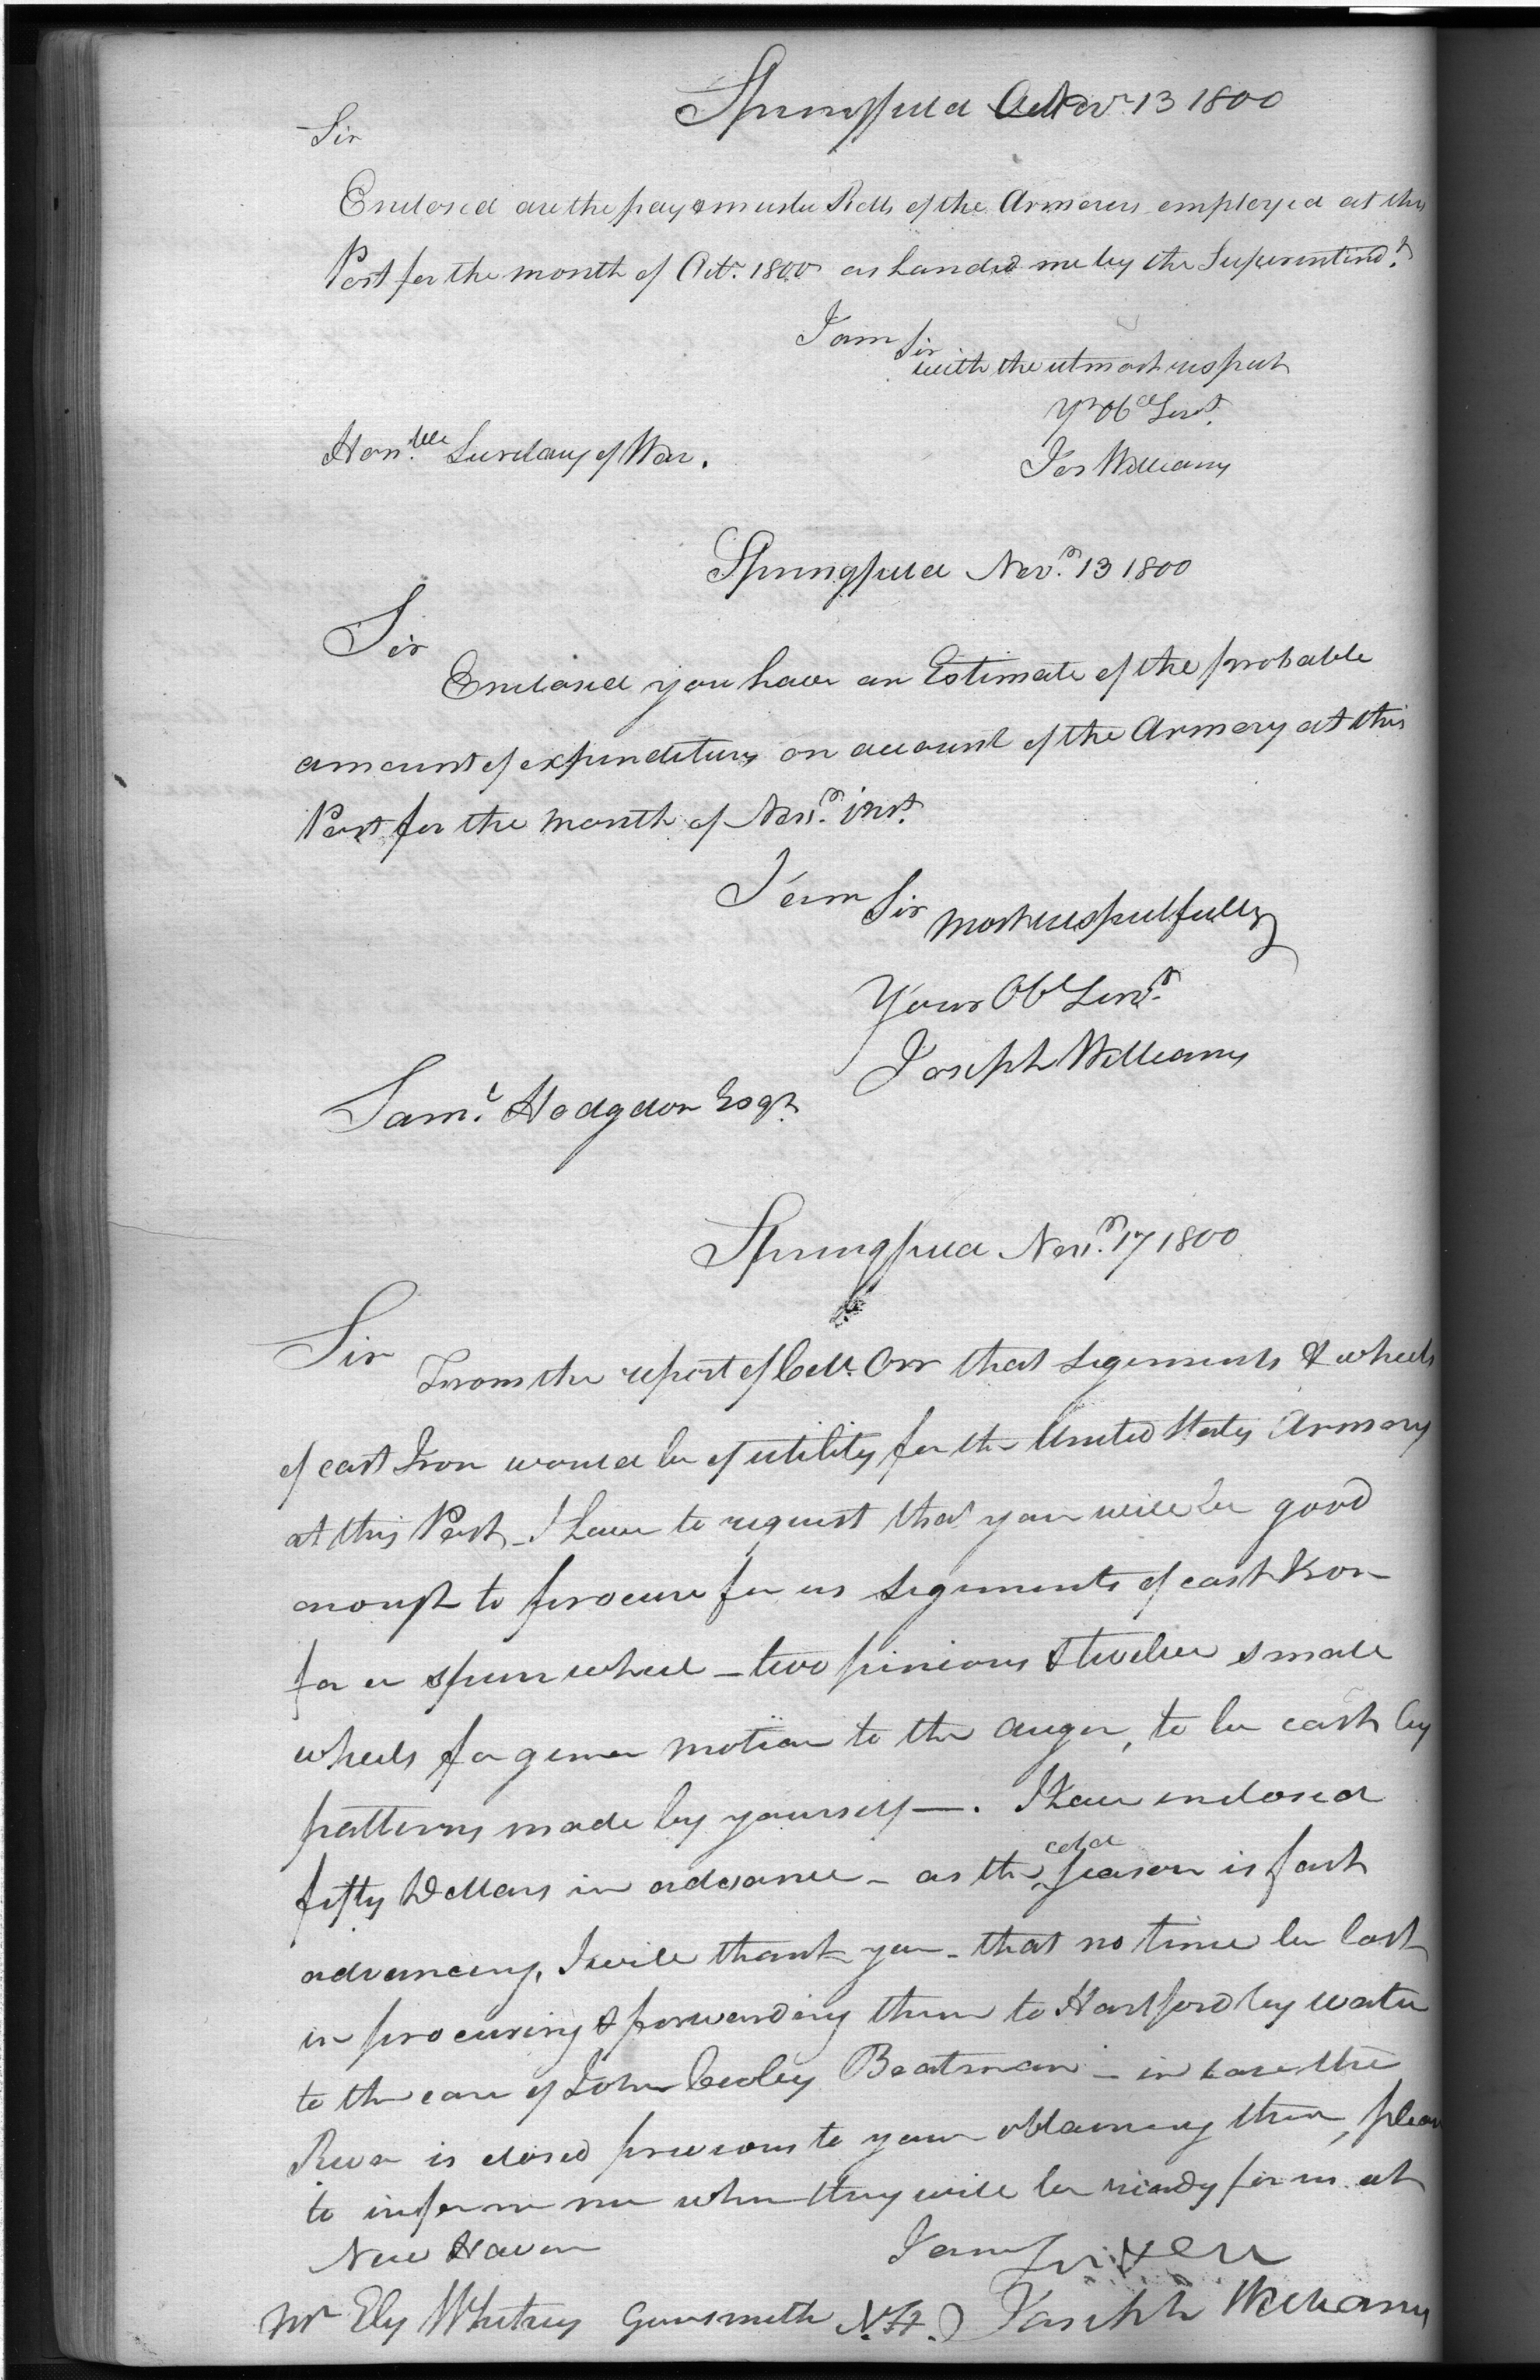 Springfield Novr. 13 1800
Sir
Enclosed are the pay & muster Rolls of the Armorers employed at this
Post for the month of Octr. 1800 as handed me by the Superintendt.
I am Sir
with the utmost respect
Yr Obd Servt.
Jos Williams
Honble. Secretary of War.
Springfield Novr. 13 1800
Sir
Enclosed you have an Estimate of the probable
amount of expenditures on account of the Armory at this
Post for the month of Novr. inst.
I am Sir most respectfully
Your Ob Servt.
Joseph Williams
Saml. Hodgdon Esqr.
Springfield Novr. 17 1800
Sir
From the report of Orr that segements & wheels
of cast Iron would be of utility for the United States Armory
at this Post - I have to request that you will be good
enough to procure for us segments of cast Iron
for a spur wheel - two pinions & twelve small
wheels for motion to the auger, to be cast by
patterns made by yourself -. I have enclosed
fifty Dollars in advance - as the cold season is fast
advancing, I will thank you - that no time be lost
in procuring & forwarding them to Hartford by water
to the care of John Cooley Boatman - in case the
River is closed previous to your obtaining them, please
to inform me when they will be ready for us at
New Haven
I am Sir
Joseph Williams
Mr Ely Whitney Gunsmith N.H.